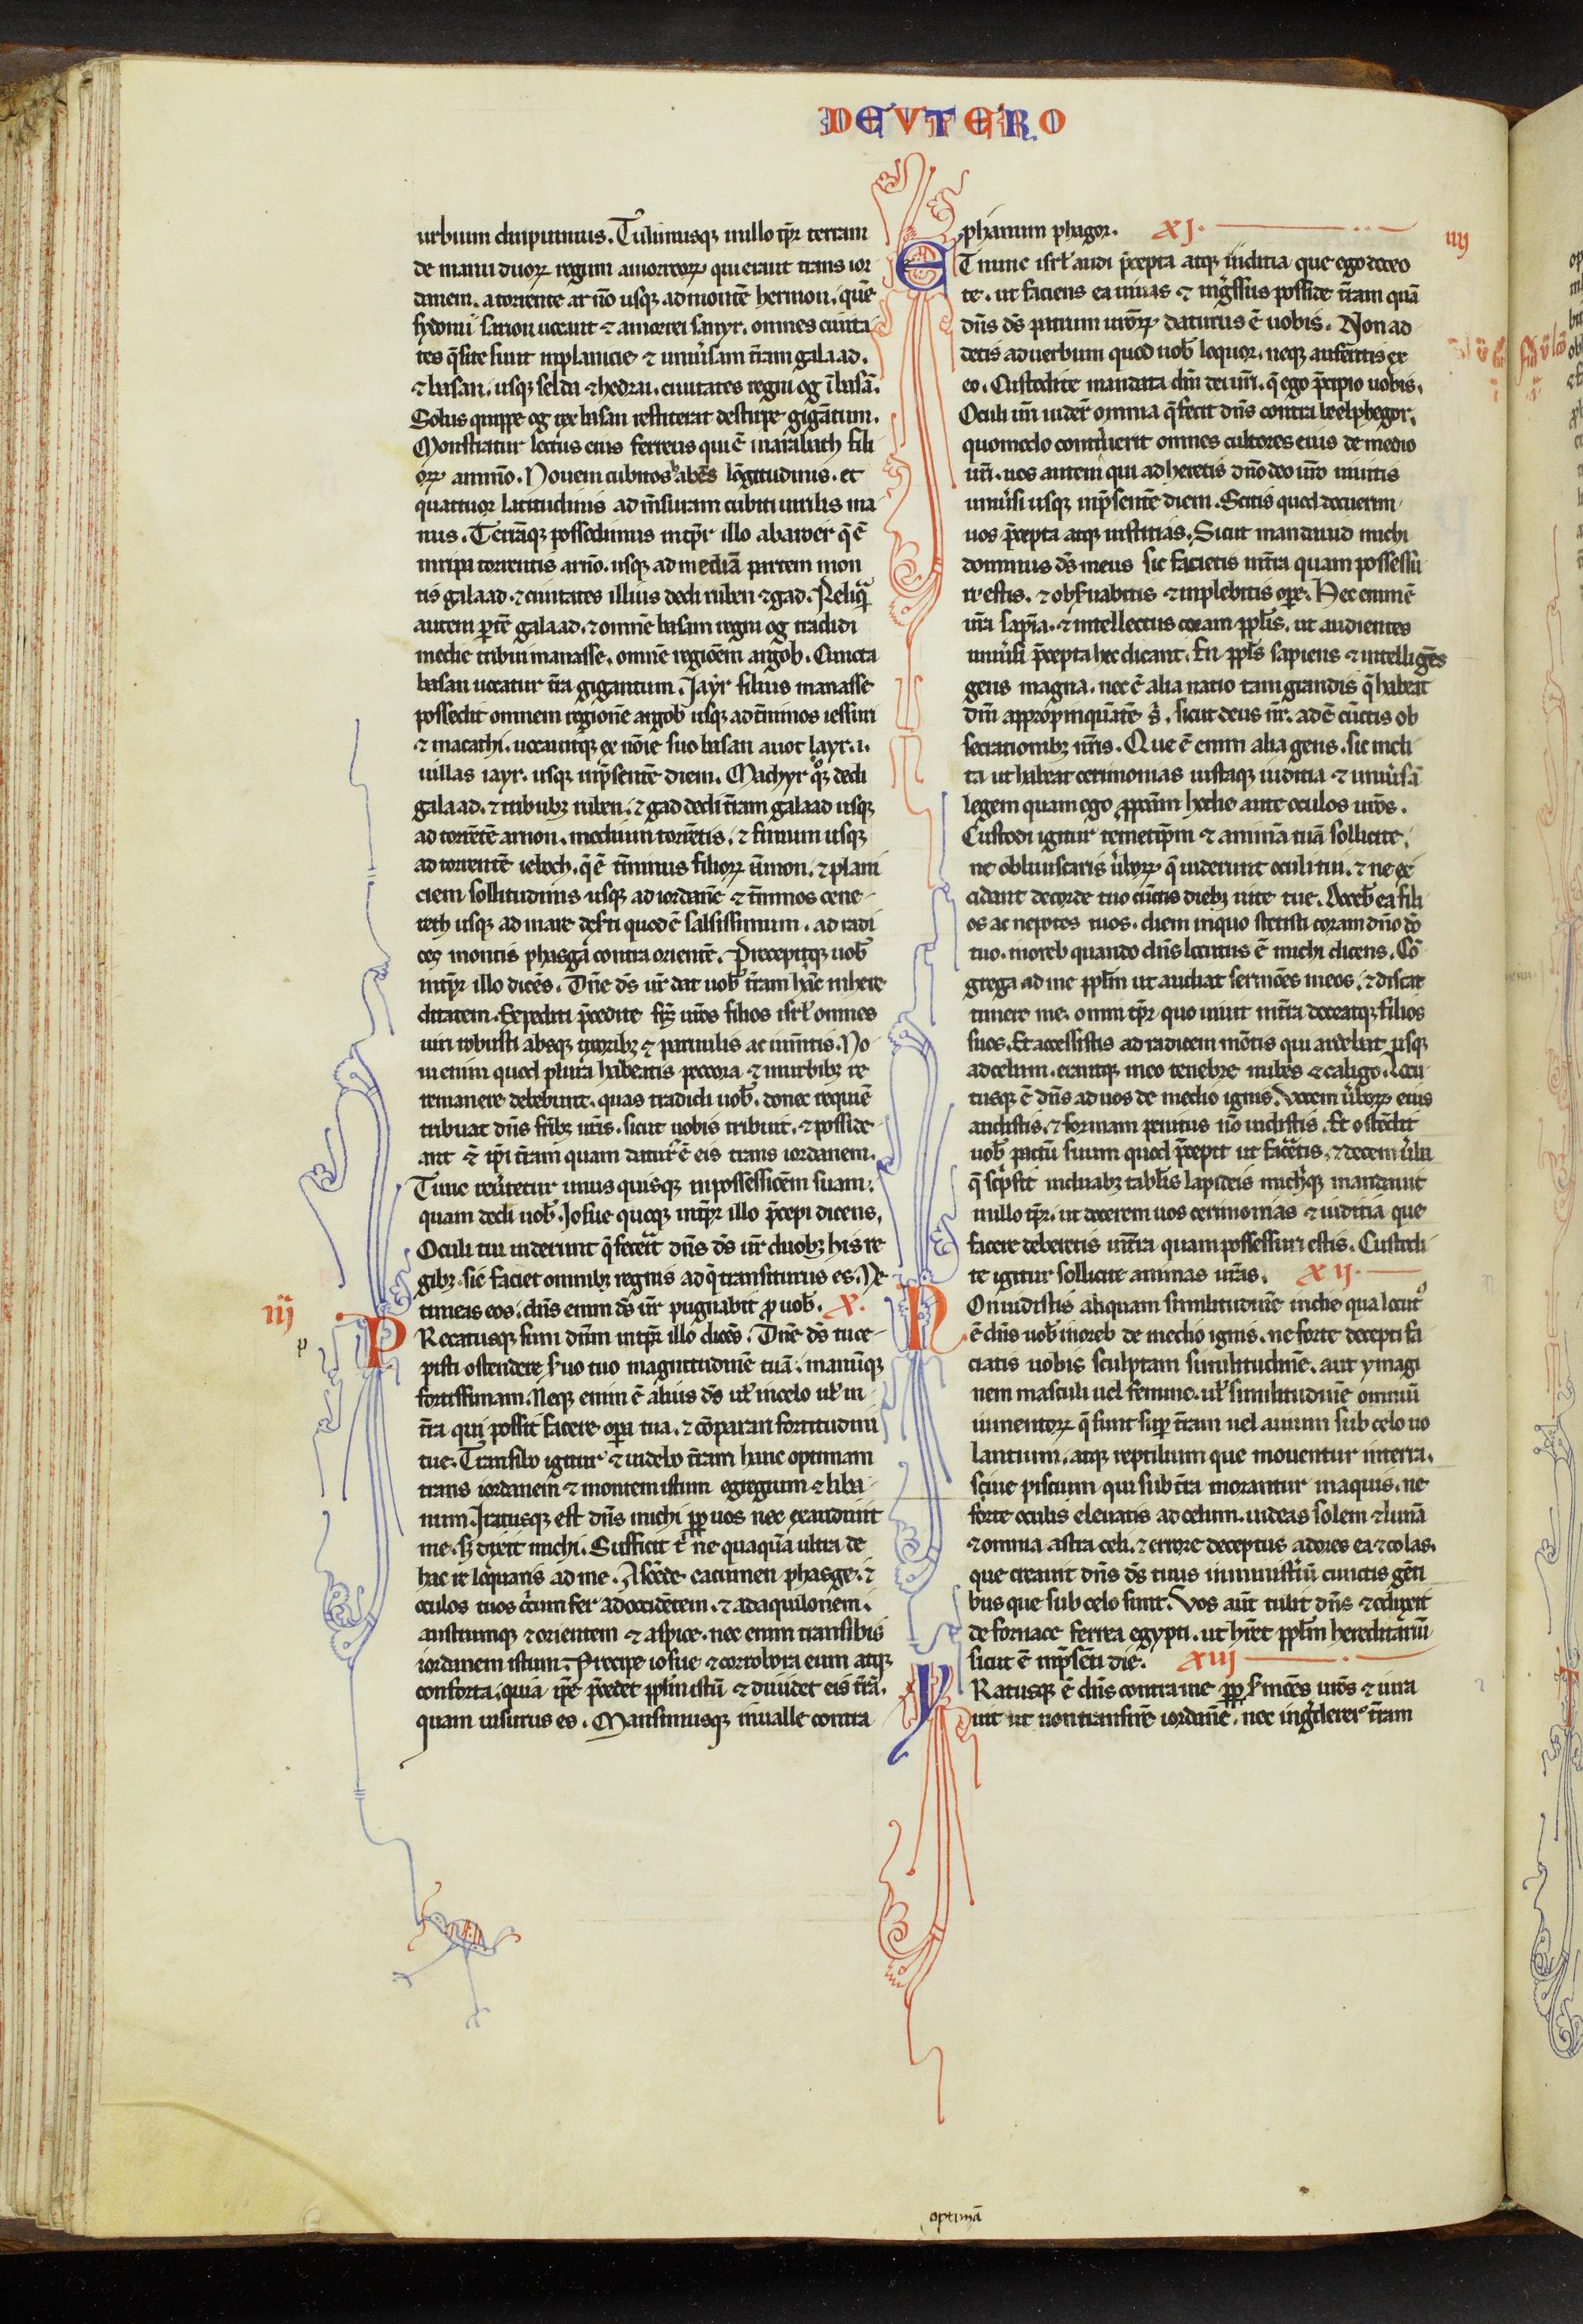 DEUTERO
urbium diripuimus. Tulimusq; in illo tp̄r terram
de manu duoꝝ regum amorreoꝝ qui erant trans ior
danem. a torrente arnō usq; ad montē hermon. quē
sydonii sarion uocant ⁊ amorrei sanyr. omnes ciuita
tes q̄ site sunt in planicie ⁊ uniūsam t̄ram galaad.
⁊ basan. usq; selcha ⁊ hedrai. ciuitates regni og ī basā.
Solus quippe og rex basan restiterat de stirpe gigātum.
Monstratur lectus eius ferreus qui ē in rabath fili
oꝝ ammō. Nouem cubitos habēs lōgitudinis. et
quattuor latitudinis ad m̄suram cubiti uirilis ma
nus. Terrāq; possedimus in tp̄r illo ab aroer q̄ ē
in ripa torrentis arnō. usq; ad mediā partem mon
tis galaad. ⁊ ciuitates illius dedi ruben ⁊ gad. Reliquā
autem ꝑtē galaad. ⁊ omne basan regni og tradidi
medie tribui manasse. omnē regiōem argob. Cuncta
basan uocatur t̄ra gigantum. Jayr filius manasse
possedit omnem regionē argob usq; ad t̄minos iessuri
⁊ macathi. uocauitq; ex nōie suo basan auot Jayr. i.
uillas iayr. usq; in p̄sentē diem. Machyr quoq; dedi
galaad. ⁊ tribubꝫ ruben. ⁊ gad dedi t̄ram galaad usq;
ad torrētē arnon. medium torrētis. ⁊ finium usq;
ad torrentē ieboch. q̄ ē t̄minus filioꝝ āmon. ⁊ plani
ciem sollitudinis usq; ad iordanē ⁊ t̄minos cene
reth usq; ad mare deserti quod ē salsissimum. ad radi
ces montis phasga contra orientē. Precepitq; uob̄
in tp̄r illo dicēs. Dn̄e ds̄ ur̄ dat uob̄ t̄ram hāc in here
ditatem. Expediti p̄cedite fr̄s uros filios isrl̄ omnes
uiri robusti absq; uxoribꝫ ⁊ paruulis ac iumētis. No
ui enim quod plura habeatis peccora ⁊ in urbibꝫ re
remanere debebunt. quas tradidi uob̄. donec requiē
tribuat dn̄s fr̄ibꝫ ur̄is. sicut uobis tribuit. ⁊ posside
ant ⁊ ip̄i t̄ram quam datur̄ ē eis trans iordanem.
Tunc reūtetur unus quisq; in possessiōem suam.
quam dedi uob̄. Josue quoq; in tp̄r illo p̄cepi dicens.
Oculi tui uiderunt q̄ fecerit dn̄s ds̄ ur̄ duobꝫ his re
gibꝫ. sic faciet omnibꝫ regnis ad q̄ transiturus es. Ne
timeas eos. dn̄s enim ds̄ ur̄ pugnabit ꝓ uob̄. X.
iij
p
PRecatusq; sum dn̄m in tp̄r illo dicēs. Dn̄e ds̄ tu ce
pisti ostendere s̄uo tuo magnitudinē tuā. manūq;
fortissimam. Neq; enim ē alius ds̄ ul̄ in celo ul̄ in
t̄ra qui possit facere opa tua. ⁊ cōparari fortitudini
tue. Transibo igitur ⁊ uidebo t̄ram hanc optimam
trans iordanem ⁊ montem istum egregium ⁊ liba
num. Iratusq; est dn̄s michi ꝓp uos nec exaudiuit
me. sꝫ dixit michi. Sufficit t̄ ne quaquā ultra de
hac re loq̄aris ad me. Ascēde cacumen phasge. ⁊
oculos tuos c̄cum fer ad occidētem. ⁊ ad aquilonem.
austrumq; ⁊ orientem ⁊ aspice. nec enim transibis
iordanem istum. Precipe iosue ⁊ corrobora eum atq;
conforta. quia ip̄e p̄cedet ppl̄m istū ⁊ diuidet eis t̄rā.
quam uisurus es. Mansimusq; in ualle contra
phanum phagor. XI.
iiij
ET nunc isrl̄ audi p̄cepta atq; iuditia que ego doceo
te. ut faciens ea uiuas ⁊ ingr̄ssus possideas t̄ram quā
dn̄s ds̄ patrum uroꝝ daturus ē uobis. Non ad
detis ad uerbum quod uob̄ loquor. neq; auferetis ex
eo. Custodite mandata dn̄i dei uri. q̄ ego p̄cipio uobis.
Oculi uri uider̄ omnia q̄ fecit dn̄s contra beelphegor.
quomodo contriuerit omnes cultores eius de medio
uri. uos autem qui adheretis dn̄o deo uro uiuitis
uniūsi usq; in p̄sentē diem. Scitis quod docuerim
uos p̄cepta atq; iustitias. Sicut mandauid michi
dominus ds̄ meus sic facietis in t̄ra quam possessu
ri estis. ⁊ obs̄uabitis ⁊ inplebitis ope. Hec enim ē
ura sapīa. ⁊ intellectus coram ppl̄is. ut audientes
uniūsi p̄cepta hec dicant. En ppl̄s sapiens ⁊ intelligēs
gens magna. nec ē alia natio tam grandis q̄ habeat
dm̄ appropinquātē s̄. sicut deus nr̄. ad ē cūctis ob
secrationibꝫ nr̄is. Que ē enim alia gens. sic incli
ta ut habeat cerimonias iustaq; iuditia ⁊ uniūsā
legem quam ego ꝓponam hodie ante oculos uros.
Custodi igitur temetip̄m ⁊ animā tuā sollicite.
ne obliuiscaris ūboꝝ q̄ uiderunt oculi tui. ⁊ ne ex
cidant de corde tuo cūctis diebꝫ uite tue. Doceb̄ ea fili
os ac nepotes tuos. diem in quo stetisti coram dn̄o dō
tuo. in oreb quando dn̄s locutus ē michi dicens. Cō
grega ad me ppl̄m ut audiat sermōes meos. ⁊ discat
timere me. omni tp̄r quo uiuit in t̄ra doceatq; filios
suos. Et accessistis ad radicem mōtis qui ardebat usq;
ad celum. erantq; in eo tenebre nubes ⁊ caligo. Locu
tusq; ē dn̄s ad uos de medio ignis. Vocem ūboꝝ eius
audistis. ⁊ formam penitus nō uidistis. Et ostēdit
uob̄ pactū suum quod p̄cepit ut facētis. ⁊ decem ūba
q̄ scripsit in duabꝫ tabl̄is lapideis michiq; mandauit
in illo tp̄r. ut docerem uos cerimonias ⁊ iuditia que
facere deberetis in t̄ra quam possessuri estis. Custodi
te igitur sollicite animas uras. XII.
NOn uidistis aliquam similitudinē in die qua locut̄
ē dn̄s uob̄ in oreb de medio ignis. ne forte decepti fa
ciatis uobis sculptam similitudinē. aut ymagi
nem masculi uel femine. ul̄ similitudinē omniū
iumentoꝝ q̄ sunt sup t̄ram uel auium sub celo uo
lantium. atq; reptilium que mouentur in terra.
siue piscium qui sub t̄ra morantur in aquis. ne
forte oculis eleuatis ad celum. uideas solem ⁊ lunā
⁊ omnia astra celi. ⁊ errore deceptus adores ea ⁊ colas.
que creauit dn̄s ds̄ tuus in ministiū cunctis gēti
bus que sub celo sunt. Vos aūt tulit dn̄s ⁊ eduxit
de fornace ferrea egypti. ut hr̄et ppl̄m hereditariū
sicut ē in p̄sēti die. XIII
IRatusq; ē dn̄s contra me ꝓp s̄mōes uros ⁊ iura
uit ut non transirē iordanē. nec inḡderer t̄ram
optimā